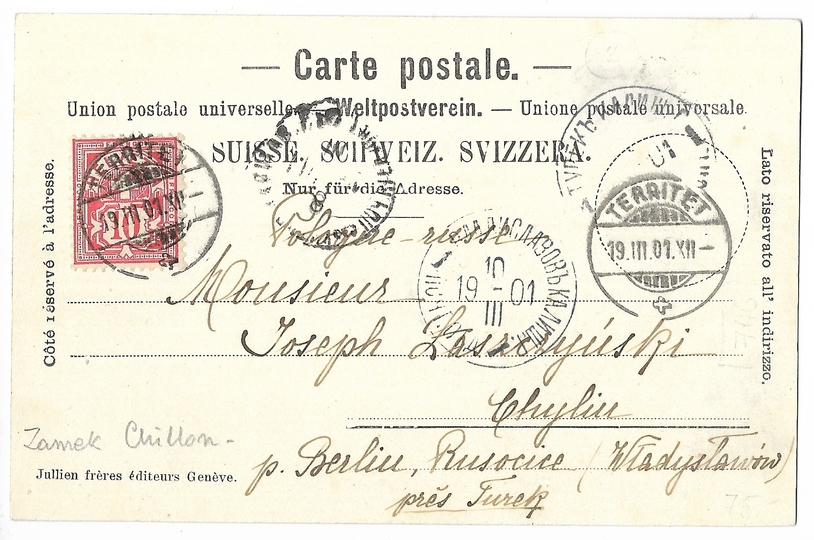 — Carte postale. —
Union postale universelle. — Weltpostverein. — Unione postale universale.
SUISSE. SCHWEIZ. SVIZZERA.
Nur für die Adresse.
Côté réservé à l'adresse.
Lato riservato all' indirizzo.
TERRITET
19.III.01.XII
10
TERRITET
19.III.01.XII—
01
10
19 - 01
III
Pologne-russe
Monsieur
Joseph Laszczyński
Chylin
p. Berlin, Rusocice (Władysławów)
près Turek
Zamek Chillon -
Jullien frères éditeurs Genève.
75.-